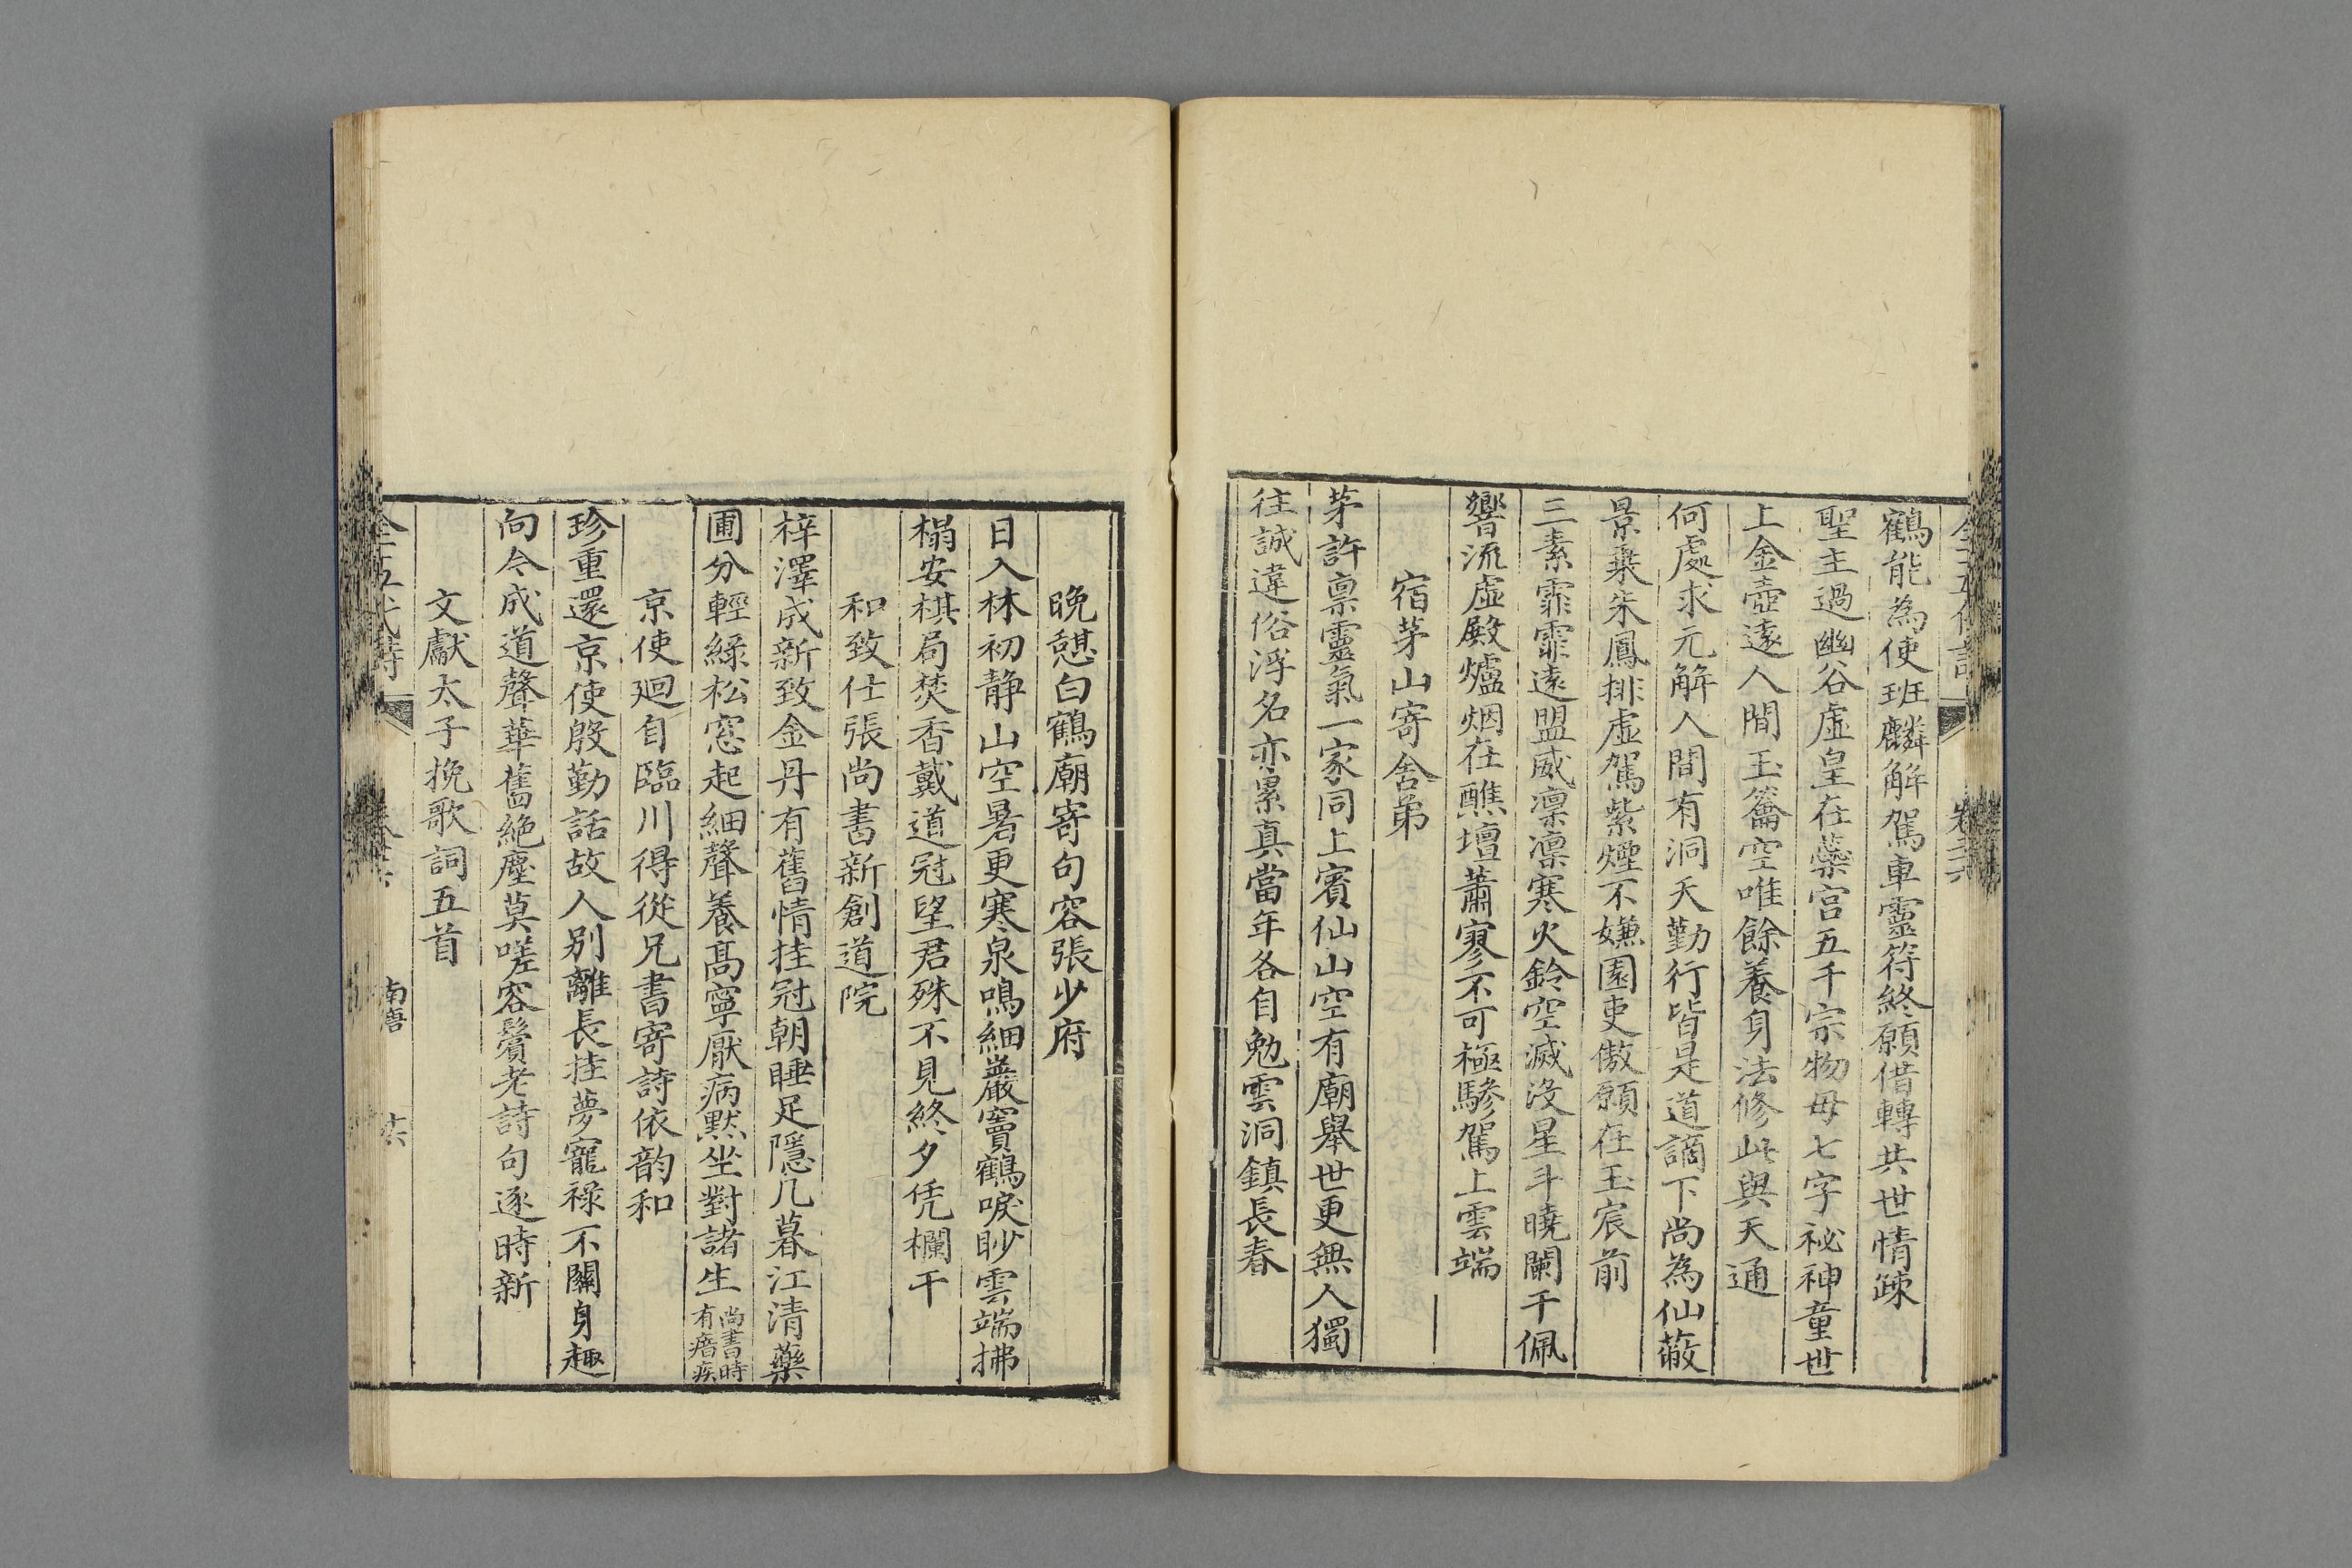 鶴能為使班麟解駕車靈符終願借轉共世情疎
聖主過幽谷虛皇在蘂宫五千宗物母七字祕神童世
上金壺遠人間玉籥空唯餘養身法修此與天通
何處求元解人間有洞天勤行皆是道謫下尚為仙蔽
景乗朱鳳排虛駕紫煙不嫌園吏傲願在玉宸前
三素霏霏遠盟威凛凛寒火鈴空滅没星斗曉闌干佩
響流虛殿爐烟在醮壇蕭寥不可極驂駕上雲端
宿茅山寄舍弟
茅許禀靈氣一家同上賓仙山空有廟舉世更無人獨
往誠違俗浮名亦累真當年各自勉雲洞鎮長春
晚憩白鶴廟寄句容張少府
日入林初静山空暑更寒泉鳴細巖竇鶴唳眇雲端拂
榻安棋局焚香戴道冠望君殊不見終夕凭欄干
和致仕張尚書新創道院
梓澤成新致金丹有舊情挂冠朝睡足隱几暮江清藥
圃分輕緑松窓起細聲養髙寧厭病黙坐對諸生尚書時
有瘖疾
京使廻自臨川得從兄書寄詩依韵和
珍重還京使殷勤話故人别離長挂夢寵禄不關身趣
向今成道聲華舊絶塵莫嗟容鬢老詩句逐時新
文獻太子挽歌詞五首
全五代詩
南唐